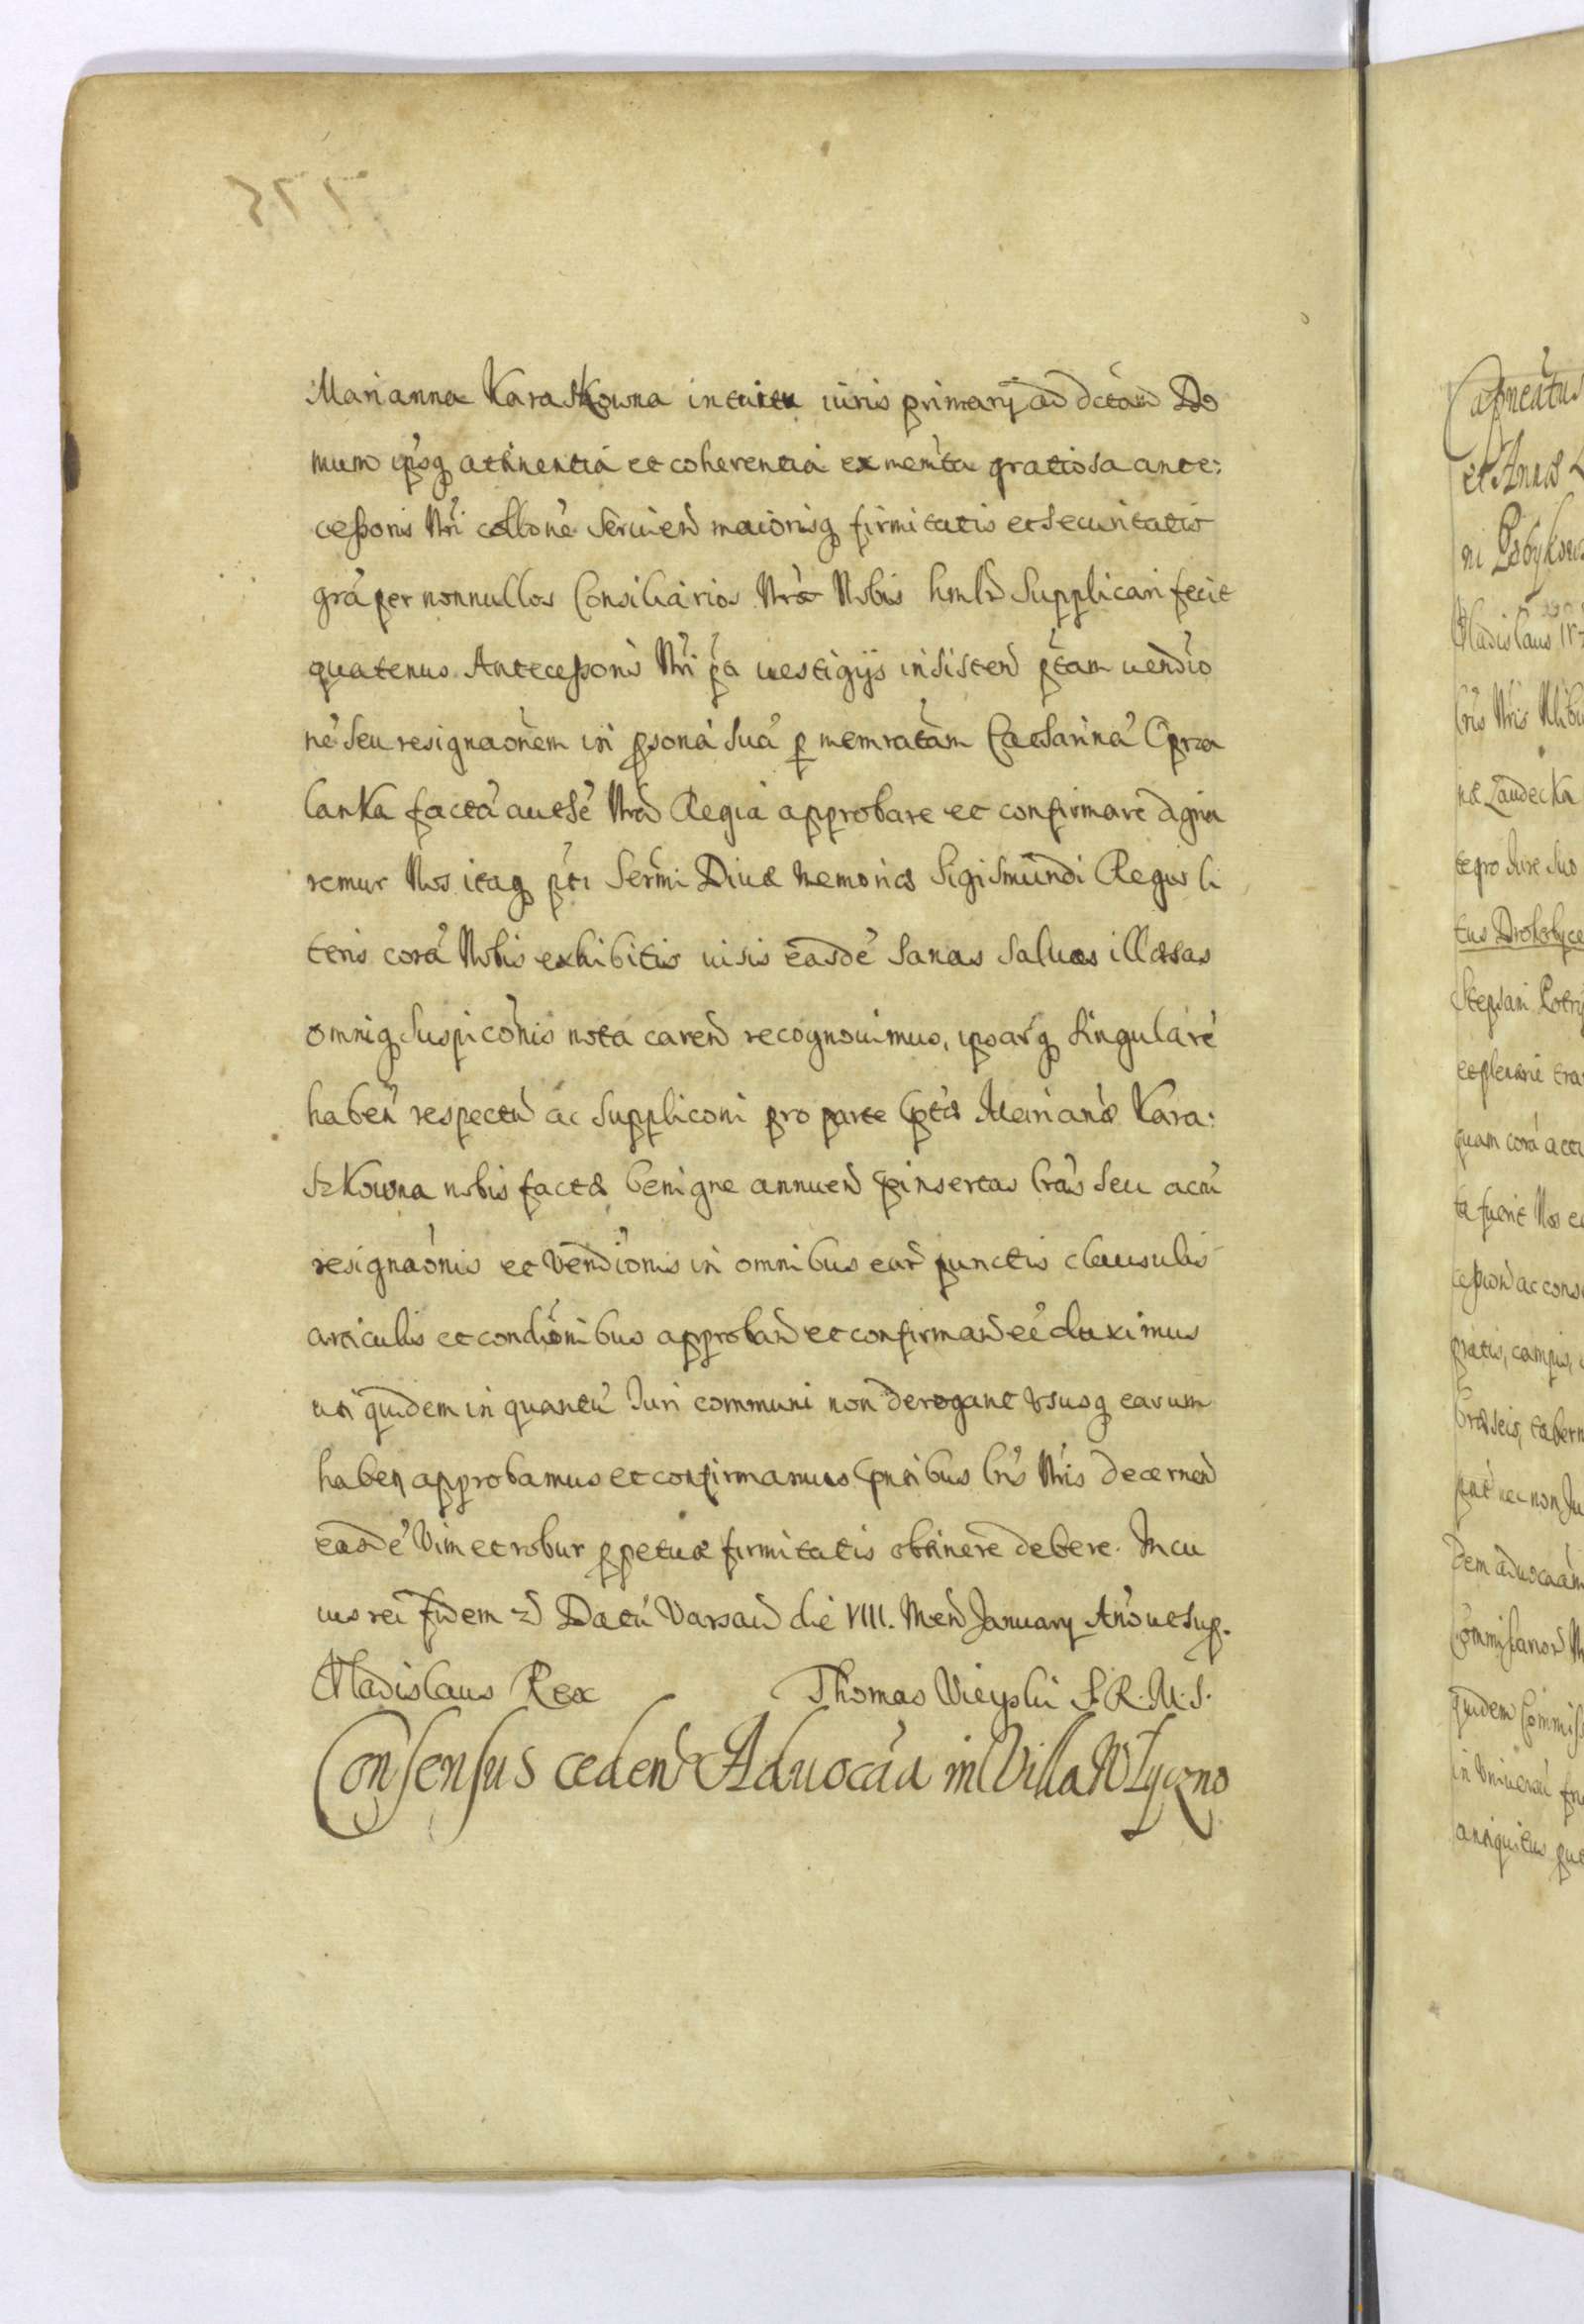 Marianna Karaskowna intuitu iuris primarij ad dctam Do
mum ipsq attinentia et coherentia ex memta gratiosa ante:
cessoris Nri collone seruien maiorisq firmitatis et securitatis
gra per nonnullos Consiliarios Nros Nobis hmlr supplicari fecit
quatenus Antecessoris Nri pa uestigijs insisten ptam uendio
ne seu resignaonem in psona sua p memratam Catharina Cprza
lanka facta authe Nra Regia approbare et confirmare digna
remur Nos itaq pti Sermi Diuæ memoriæ Sigismundi Regis li
teris cora Nobis exhibitis uisis easde sanas saluas illæsas
omniq suspiconis nota caren recognouimus, ipsarq singulare
haben respectu ac suppliconi pro parte sptæ Marianæ Kara:
szkowna nobis factæ benigne annuen pinsertas lras seu actu
resignaonis et vendionis in omnibus ear punctis clausulis
articulis et condionibus approban et confirman ee duximus
uti quidem in quantu Iuri communi non derogant vsusq earum
haben approbamus et confirmamus pntibus lris Nris decernen
easde vim et robur ppetuæ firmitatis obtinere debere. In cu
ius rei fidem Datu Varsaw die VIII. Men January Ano ut sup.
Vladislaus Rex Thomas Vieyski S.R.M.S.
Consensus ceden Aduocaa in Villa N Łyczno
775
Capneatus
et Annæ
Vladislaus IV
lris Nris Nlibu
næ Zandecka
te pro Iure suo
tus Drohobyce
Stephani Potri
et plenarie tra
quam cora acti
ta fuerit Nos
cession ac cons
pratis, campis,
necnon Iu
dem aduocaam
quidem Commiss
in Vniuersu
antiquitus